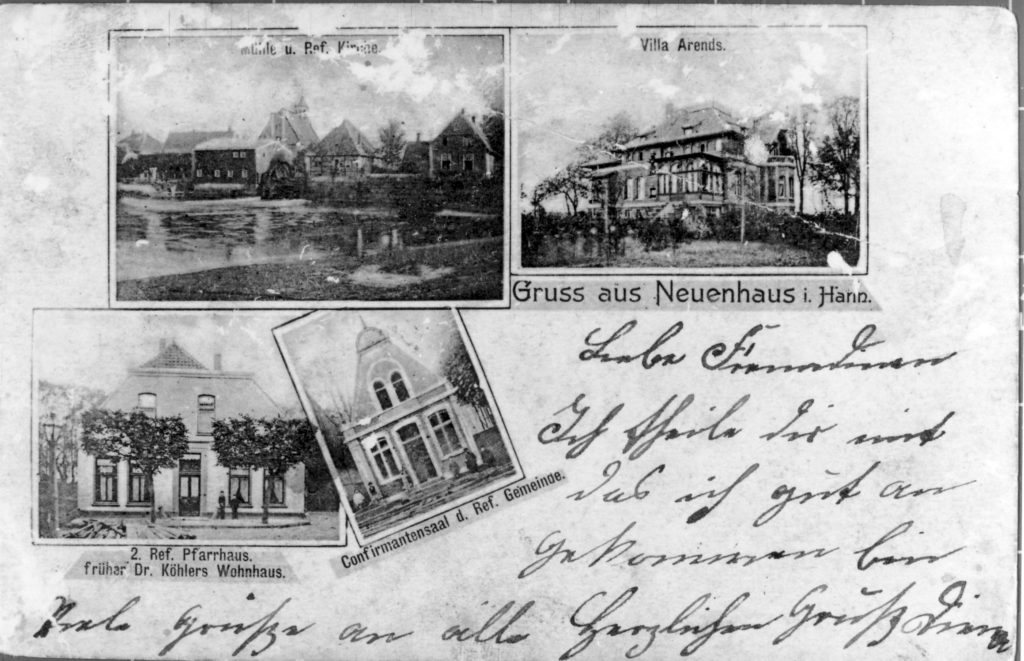 Mühle u. Ref. Kirche.
Villa Arends.
Gruss aus Neuenhaus i. Hann.
2. Ref. Pfarrhaus.
früher Dr. Köhlers Wohnhaus.
Confirmantensaal d. Ref. Gemeinde.
Liebe Freundinen
Ich theile dir mit
das ich gut an
gekommen bin
Viele Grüsze an alle Herzlichen Grusz